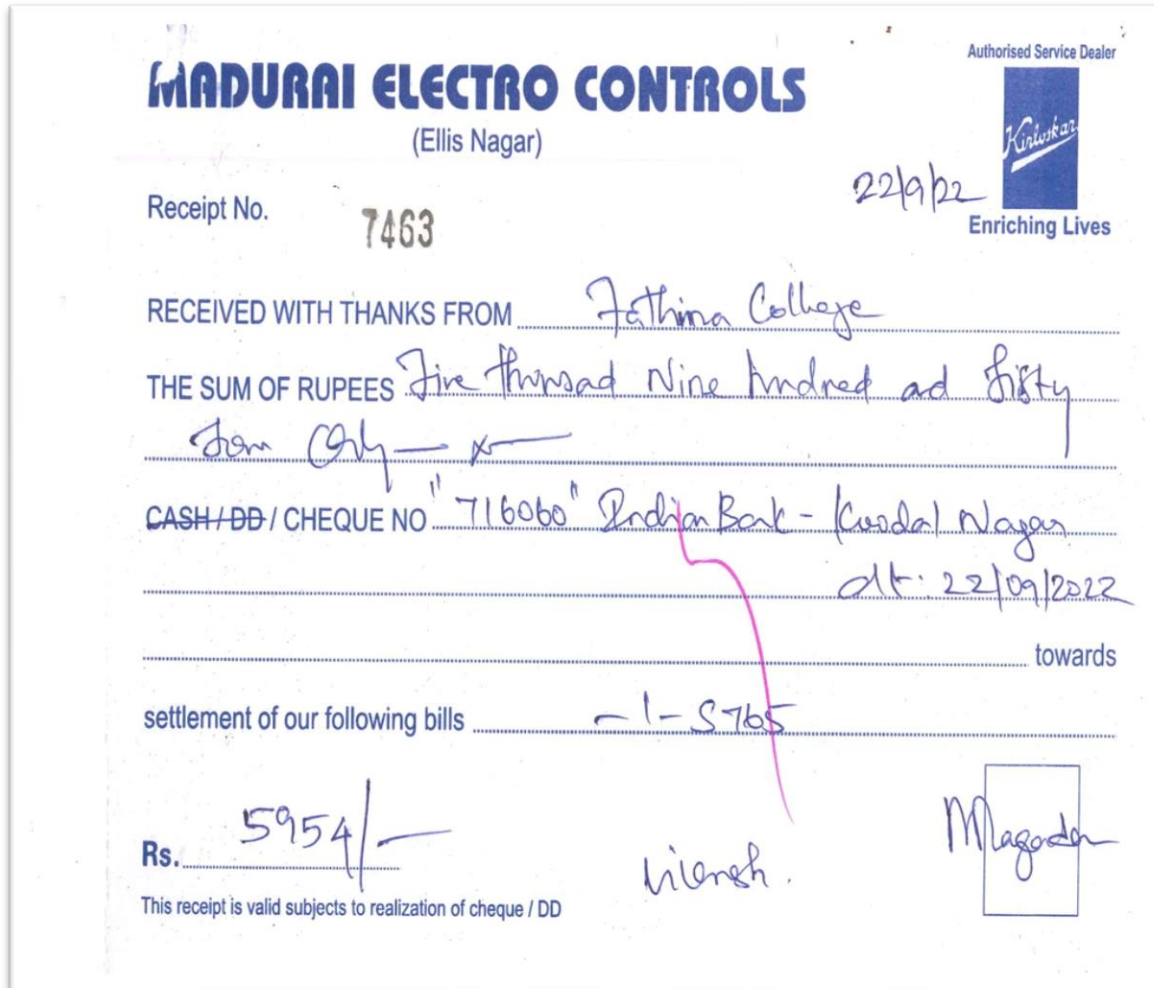 Authorised Service Dealer
MADURAI ELECTRO CONTROLS
(Ellis Nagar)
Kirloskar
Enriching Lives
22/9/22
Receipt No. 7463
RECEIVED WITH THANKS FROM Fathima College
THE SUM OF RUPEES Five thousad Nine hundred ad fifty
four Only — x —
CASH / DD / CHEQUE NO "716060" Indian Bank - Koodal Nagar
dt: 22/09/2022
towards
settlement of our following bills -1- S765
Rs. 5954/-
This receipt is valid subjects to realization of cheque / DD